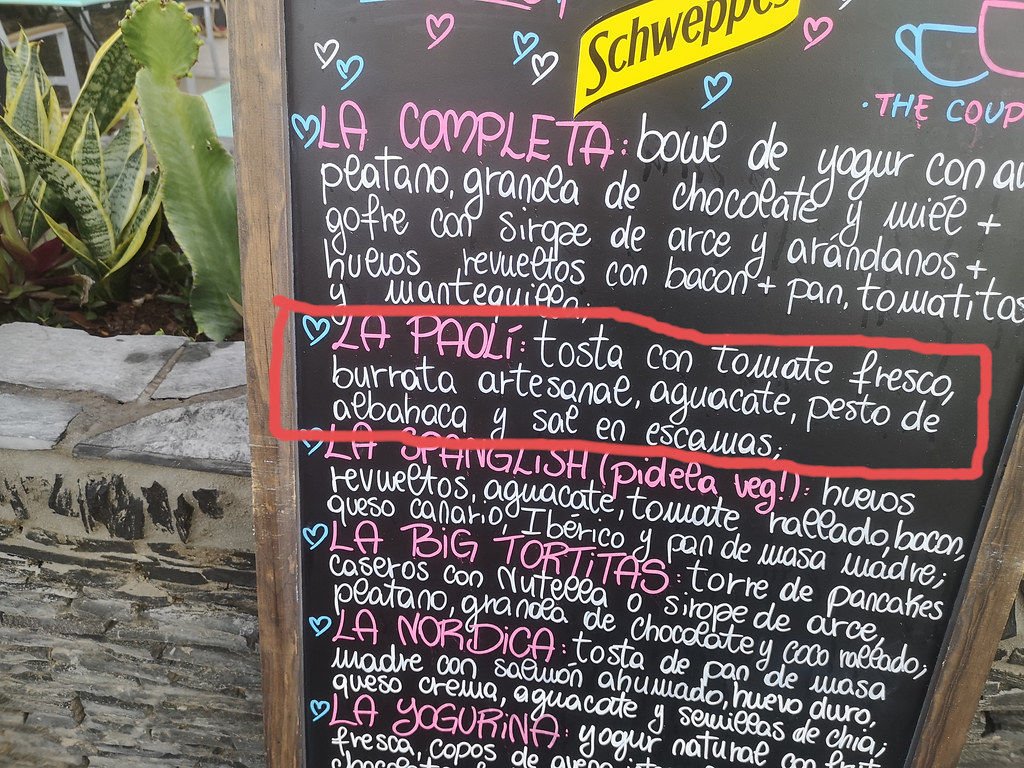 Schweppes
· THE COUP
LA COMPLETA: bowl de yogur con
platano, granola de chocolate y miel +
gofre con sirope de arce y arándanos +
huevos revueltos con bacon + pan, tomatitos
y mantequilla;
LA PAOLÍ: tosta con tomate fresco,
burrata artesanal, aguacate, pesto de
albahaca y sal en escamas;
LA SPANGLISH (pidela veg!): huevos
revueltos, aguacate, tomate rallado, bacon,
queso canario, Ibérico y pan de masa madre;
LA BIG TORTITAS: torre de pancakes
caseros con Nutella o sirope de arce,
platano, granola de chocolate y coco rallado;
LA NORDICA: tosta de pan de masa
madre con salmón ahumado, huevo duro,
queso crema, aguacate y semillas de chia;
LA YOGURINA: yogur natural con
fresca, copos de avena